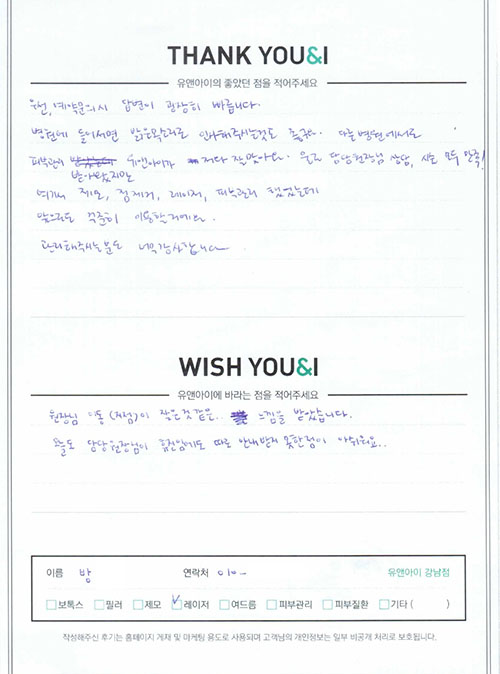 THANK YOU&I
유앤아이의 좋았던 점을 적어주세요
우선, 예약문의시 답변이 굉장히 빠릅니다.
병원에 들어서면 밝은목소리로 인사해주시는것도 좋구요. 다른병원에서도
피부관리 유앤아이가 저와 잘맞아요. 원장 담당원장님 상담, 시술 모두 만족!
받아봤지만
여기서 제모, 점제거, 레이저, 피부관리 했었는데
앞으로도 꾸준히 이용할거예요.
관리해주시는분도 너무감사합니다
WISH YOU&I
유앤아이에 바라는 점을 적어주세요
원장님 이동(지점)이 잦은것같은.. 느낌을 받았습니다.
오늘도 담당원장님이 휴진임에도 따로 안내받지 못한점이 아쉬워요..
이름 방 연락처 010- 유앤아이 강남점
보톡스 필러 제모 레이저 여드름 피부관리 피부질환 기타 ( )
작성해주신 후기는 홈페이지 게재 및 마케팅 용도로 사용되며 고객님의 개인정보는 일부 비공개 처리로 보호됩니다.